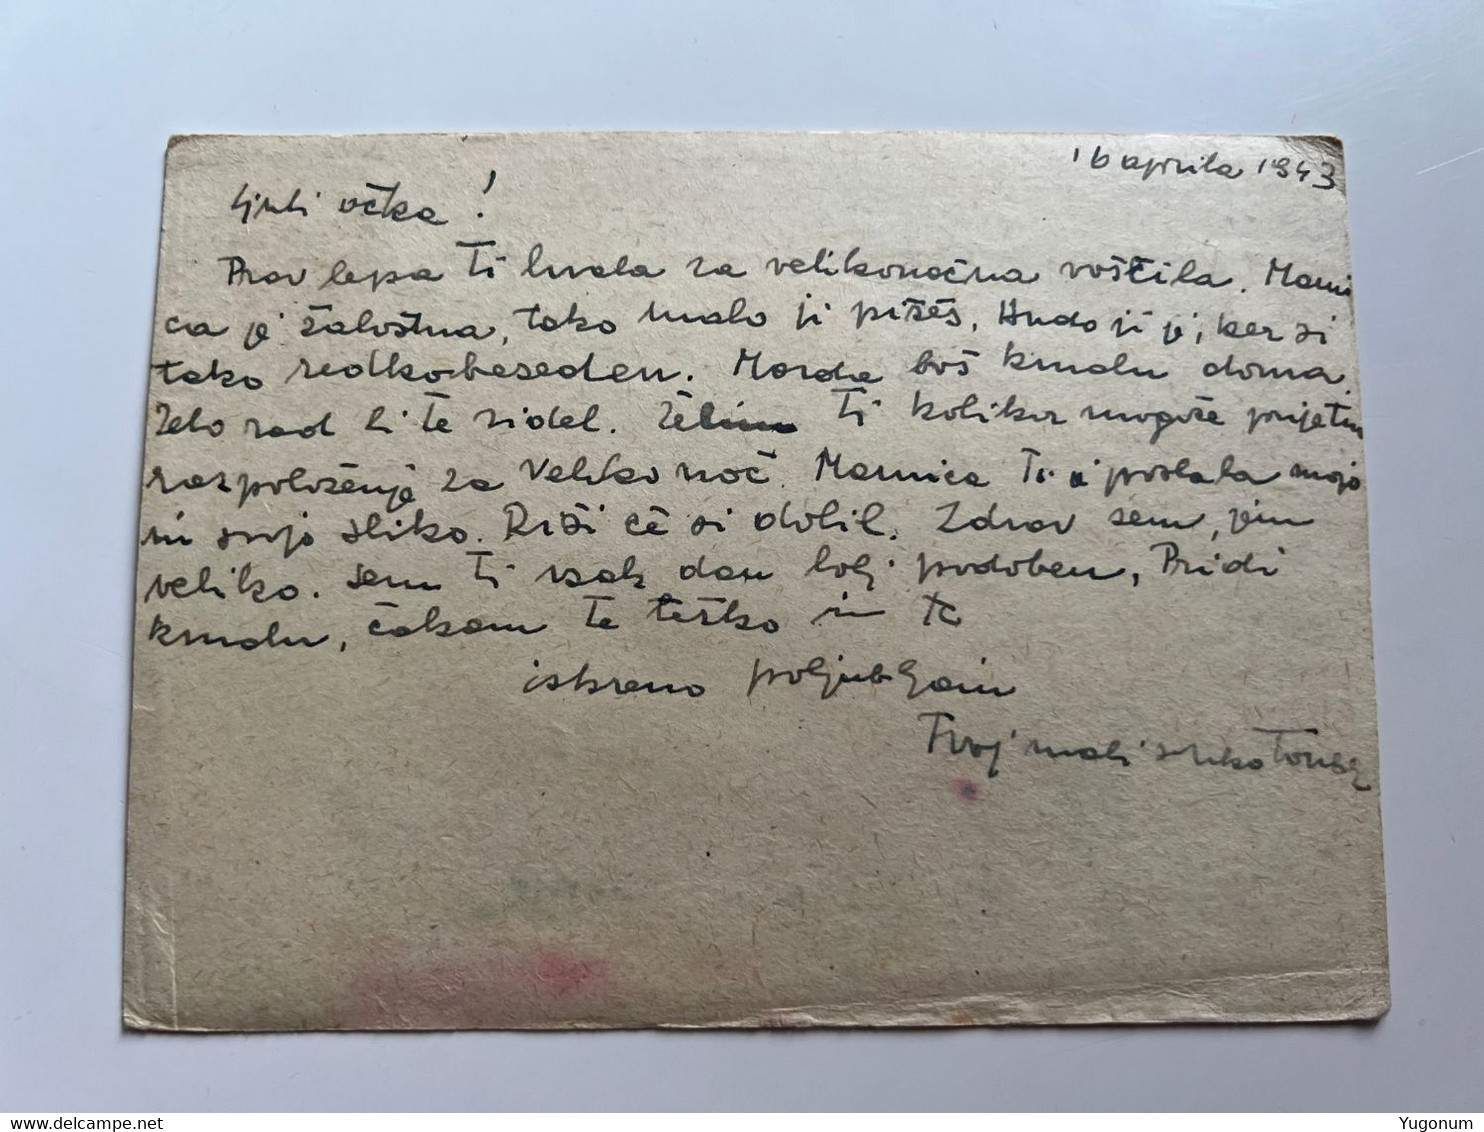 16 aprila 1943
Ljubi očka!
Prav lepa Ti hvala za velikonočna voščila. Mami
ca je žalostna, tako malo ji pišeš. Hudo ji je, ker si
tako redkobeseden. Morda boš kmalu doma.
Zelo rad bi te videl. Želim Ti kolikor mogoče prijetno
razpoloženje za Veliko noč. Mamica Ti je poslala mojo
in svojo sliko. Piši če si dobil. Zdrav sem, jem
veliko. Sem Ti vsak dan bolj podoben, Pridi
kmalu, čakam te težko in te
iskreno poljubljam
Tvoj mali
Yugonum
delcampe.net